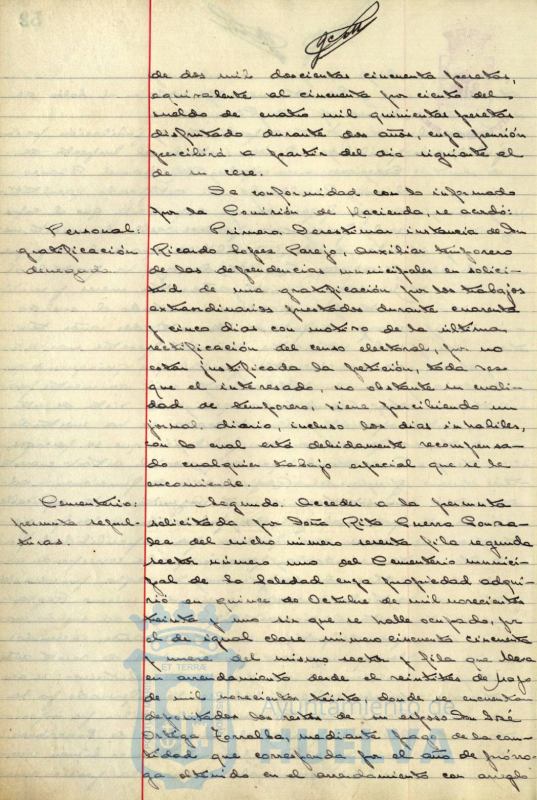 de dos mil doscientas cincuenta pesetas,
equivalente al cincuenta por ciento del
sueldo de cuatro mil quinientas pesetas
disfrutado durante dos años, cuya pensión
percibirá a partir del dia siguiente al
de su cese.
De conformidad con lo informado
por la Comisión de Hacienda, se acordó:
Personal:
gratificación
denegada
Primero. Desestimar instancia de Don
Ricardo Lopez Parejo, Auxiliar temporero
de las dependencias municipales en solici-
tud de una gratificación por los trabajos
extraordinarios prestados durante cuarenta
y cinco dias con motivo de la última
rectificación del censo electoral, por no
estar justificada la petición, toda vez
que el interesado, no obstante su cuali-
dad de temporero, viene percibiendo un
jornal diario, incluso los dias inhabiles,
con lo cual está debidamente recompensa-
do cualquier trabajo especial que se le
encomiende.
Cementerio:
permuta sepul-
turas.
Segundo. Acceder a la permuta
solicitada por Doña Rita Guerra Gonza-
lez del nicho número sesenta fila segunda
sector número uno del Cementerio munici-
pal de la Soledad cuya propiedad adqui-
rió en quince de Octubre de mil novecientos
treinta y uno sin que se halle ocupado, por
el de igual clase número cincuenta
y nueve del mismo sector y fila que lleva
en arrendamiento desde el veintitres de Mayo
de mil novecientos treinta donde se encuentran
depositados los restos de su esposo Don José
Ortega Torralba, mediante pago de la can-
tidad que corresponda por el año de prórro-
ga obtenido en el arrendamiento con arreglo
ET TERRÆ
Ayuntamiento de
HUELVA